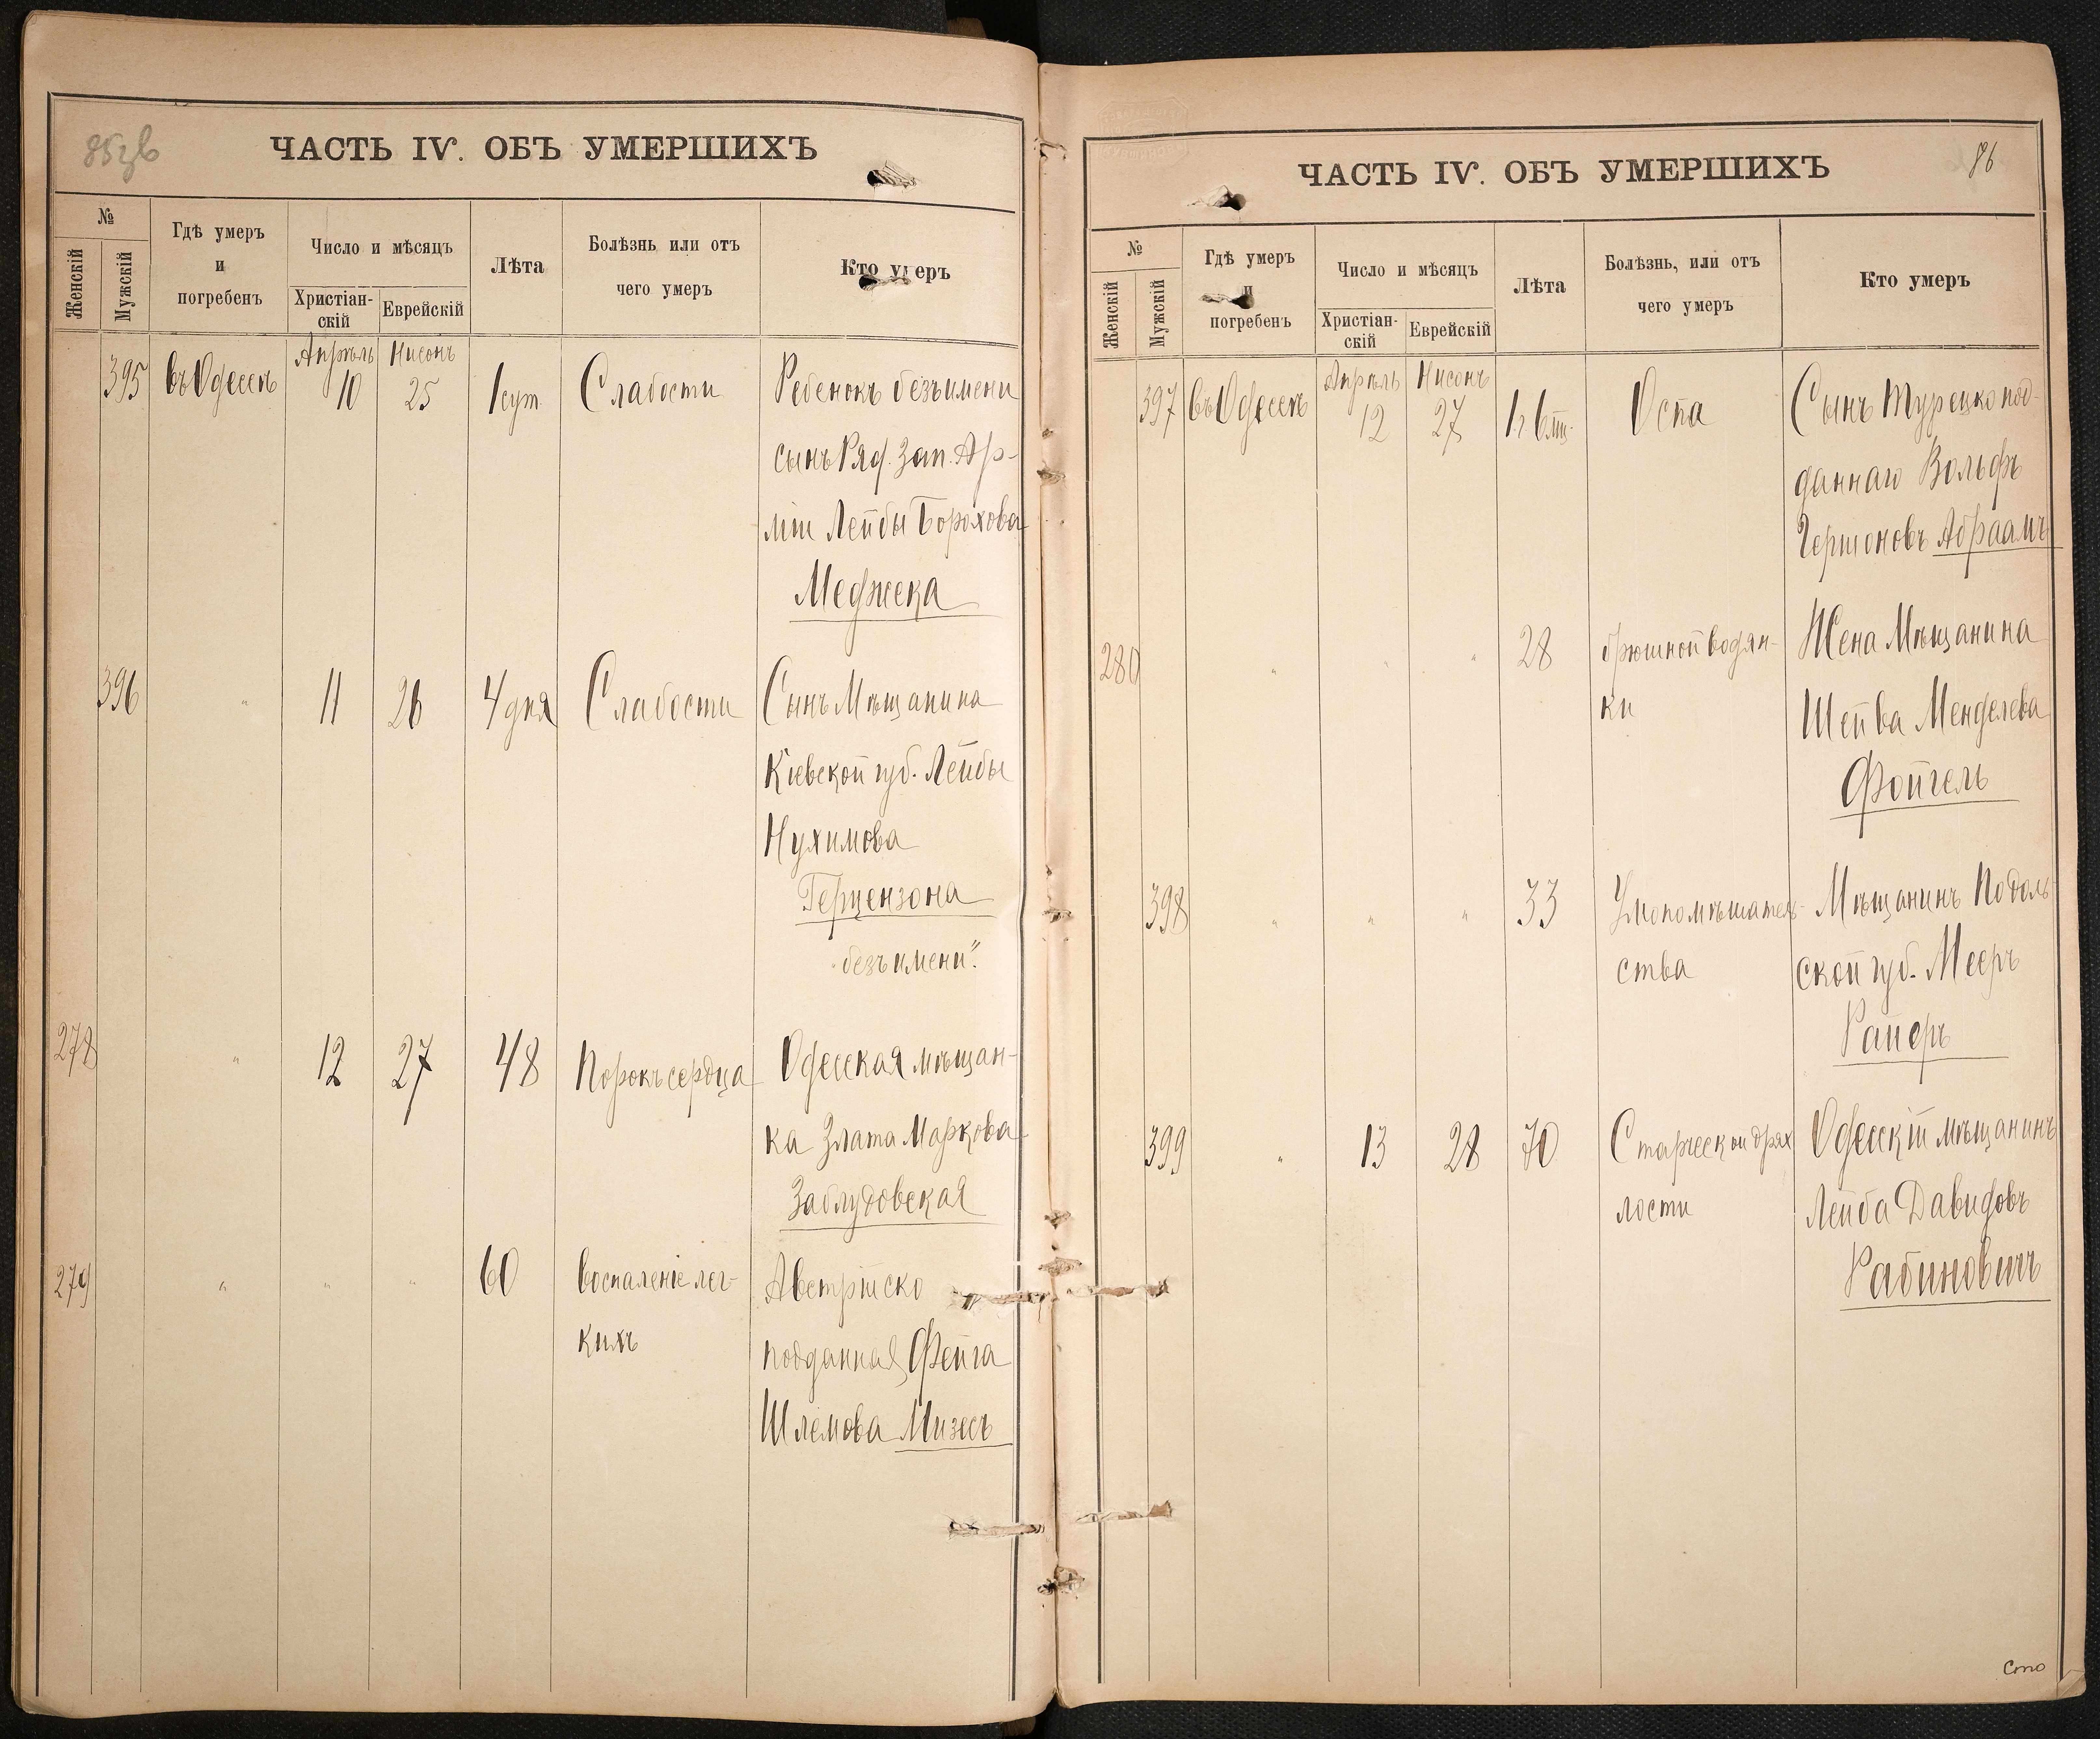 85 зв
ЧАСТЬ IV. ОБЪ УМЕРШИХЪ
№
Женскій
Мужскій
Гдѣ умеръ
и
погребенъ
Число и мѣсяцъ
Христіан-
скій
Еврейскій
Лѣта
Болѣзнь или отъ
чего умеръ
Кто умеръ
Апрѣль Нисонъ
395 въ Одессѣ 10 25 1 сут. Слабости Ребенокъ безъ имени
сынъ Ряд. Зап. Ар-
міи Лейбы Борохова
Меджека
396 " 11 26 4 дня Слабости Сынъ Мѣщанина
Кіевской губ. Лейбы
Нухимова
Герцензона
"безъ имени".
278 " 12 27 48 Порокъ сердца Одесская мѣщан-
ка Злата Маркова
Заблудовская
279 " " " 60 воспаленіе лег- Австрійско
кихъ
подданная Фейга
Шлемова Мизесъ
86
ЧАСТЬ IV. ОБЪ УМЕРШИХЪ
№
Женскій
Мужскій
Гдѣ умеръ
и
погребенъ
Число и мѣсяцъ
Христіан-
скій
Еврейскій
Лѣта
Болѣзнь, или отъ
чего умеръ
Кто умеръ
Апрѣль Нисонъ
397 въ Одессѣ 12 27 1 г 6 мѣс. Оспа Сынъ Турецко под-
даннаго Вольфъ
Гершоновъ Абраамъ
280 " " " 28 брюшной водян- Жена Мѣщанина
ки Шейва Менделева
Фойгель
398 " " " 33 Умопомѣшатель- Мѣщанинъ Подоль-
ства ской губ. Мееръ
Раперъ
399 " 13 28 70 Старческой дрях Одесскій мѣщанинъ
лости Лейба Давидовъ
Рабиновичъ
Сто